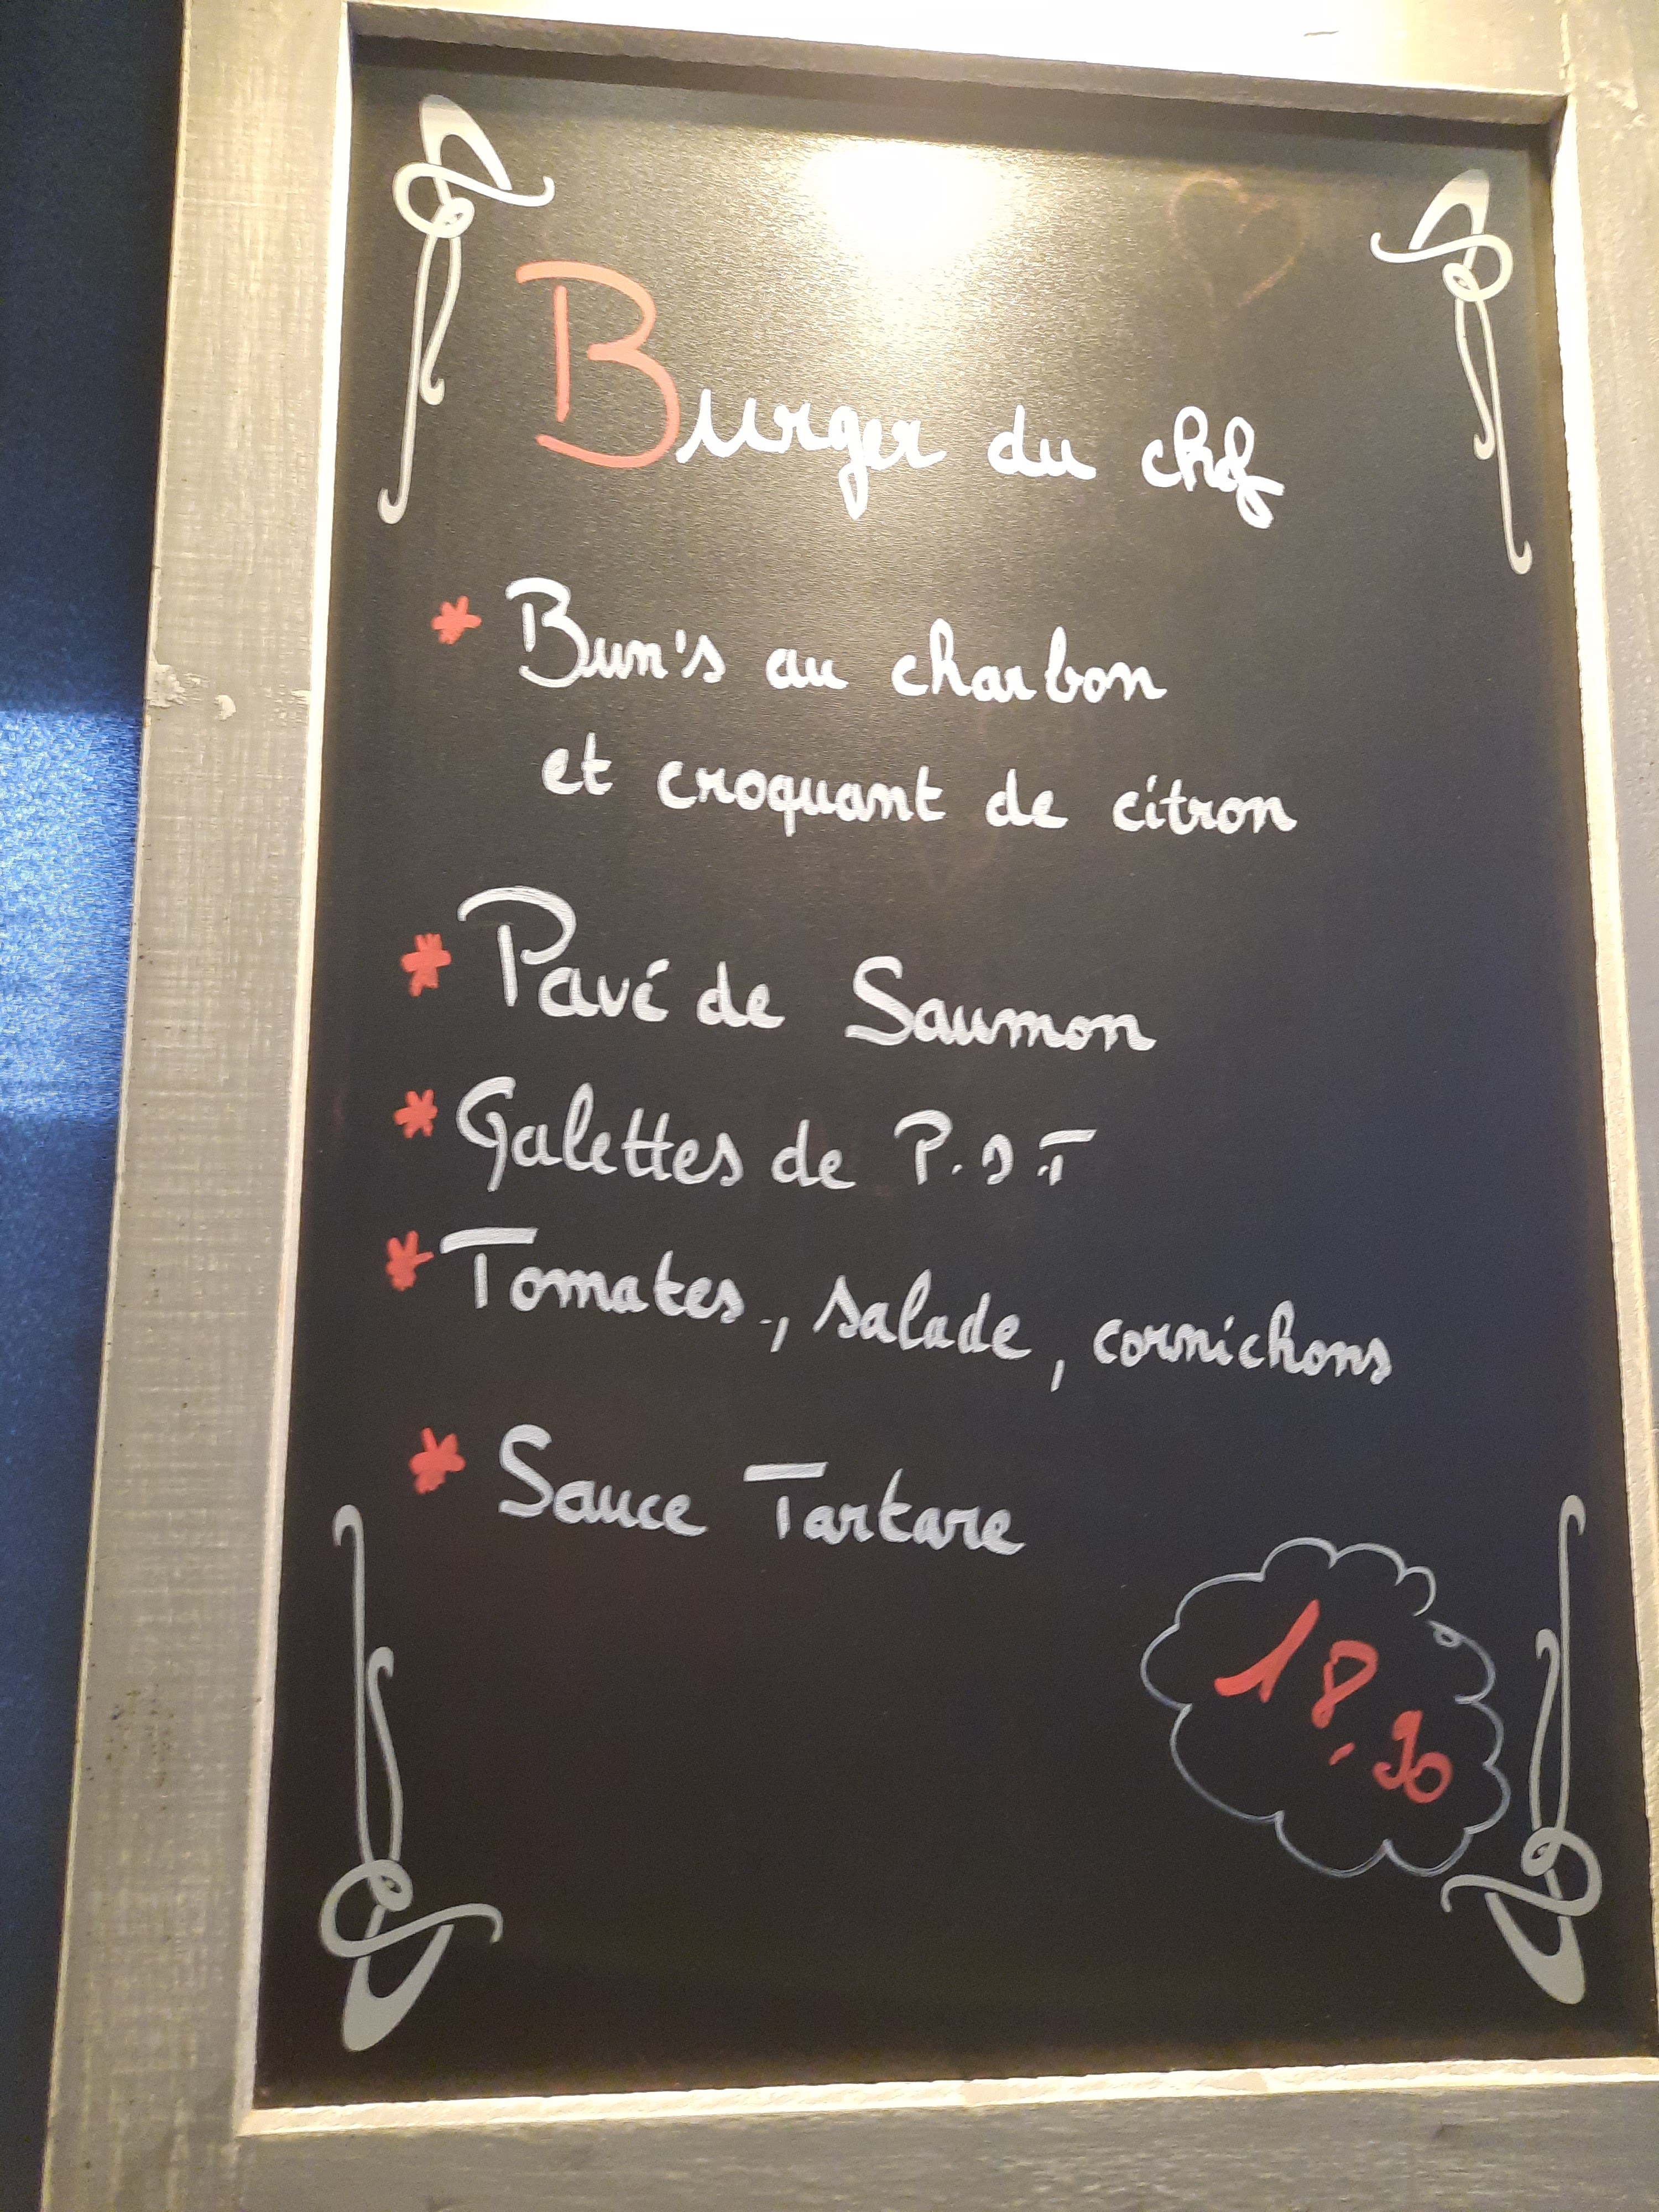 Burger du chef
* Bun's au charbon
et croquant de citron
* Pavé de Saumon
* Galettes de P.D.T
* Tomates, salade, cornichons
* Sauce Tartare
18.90